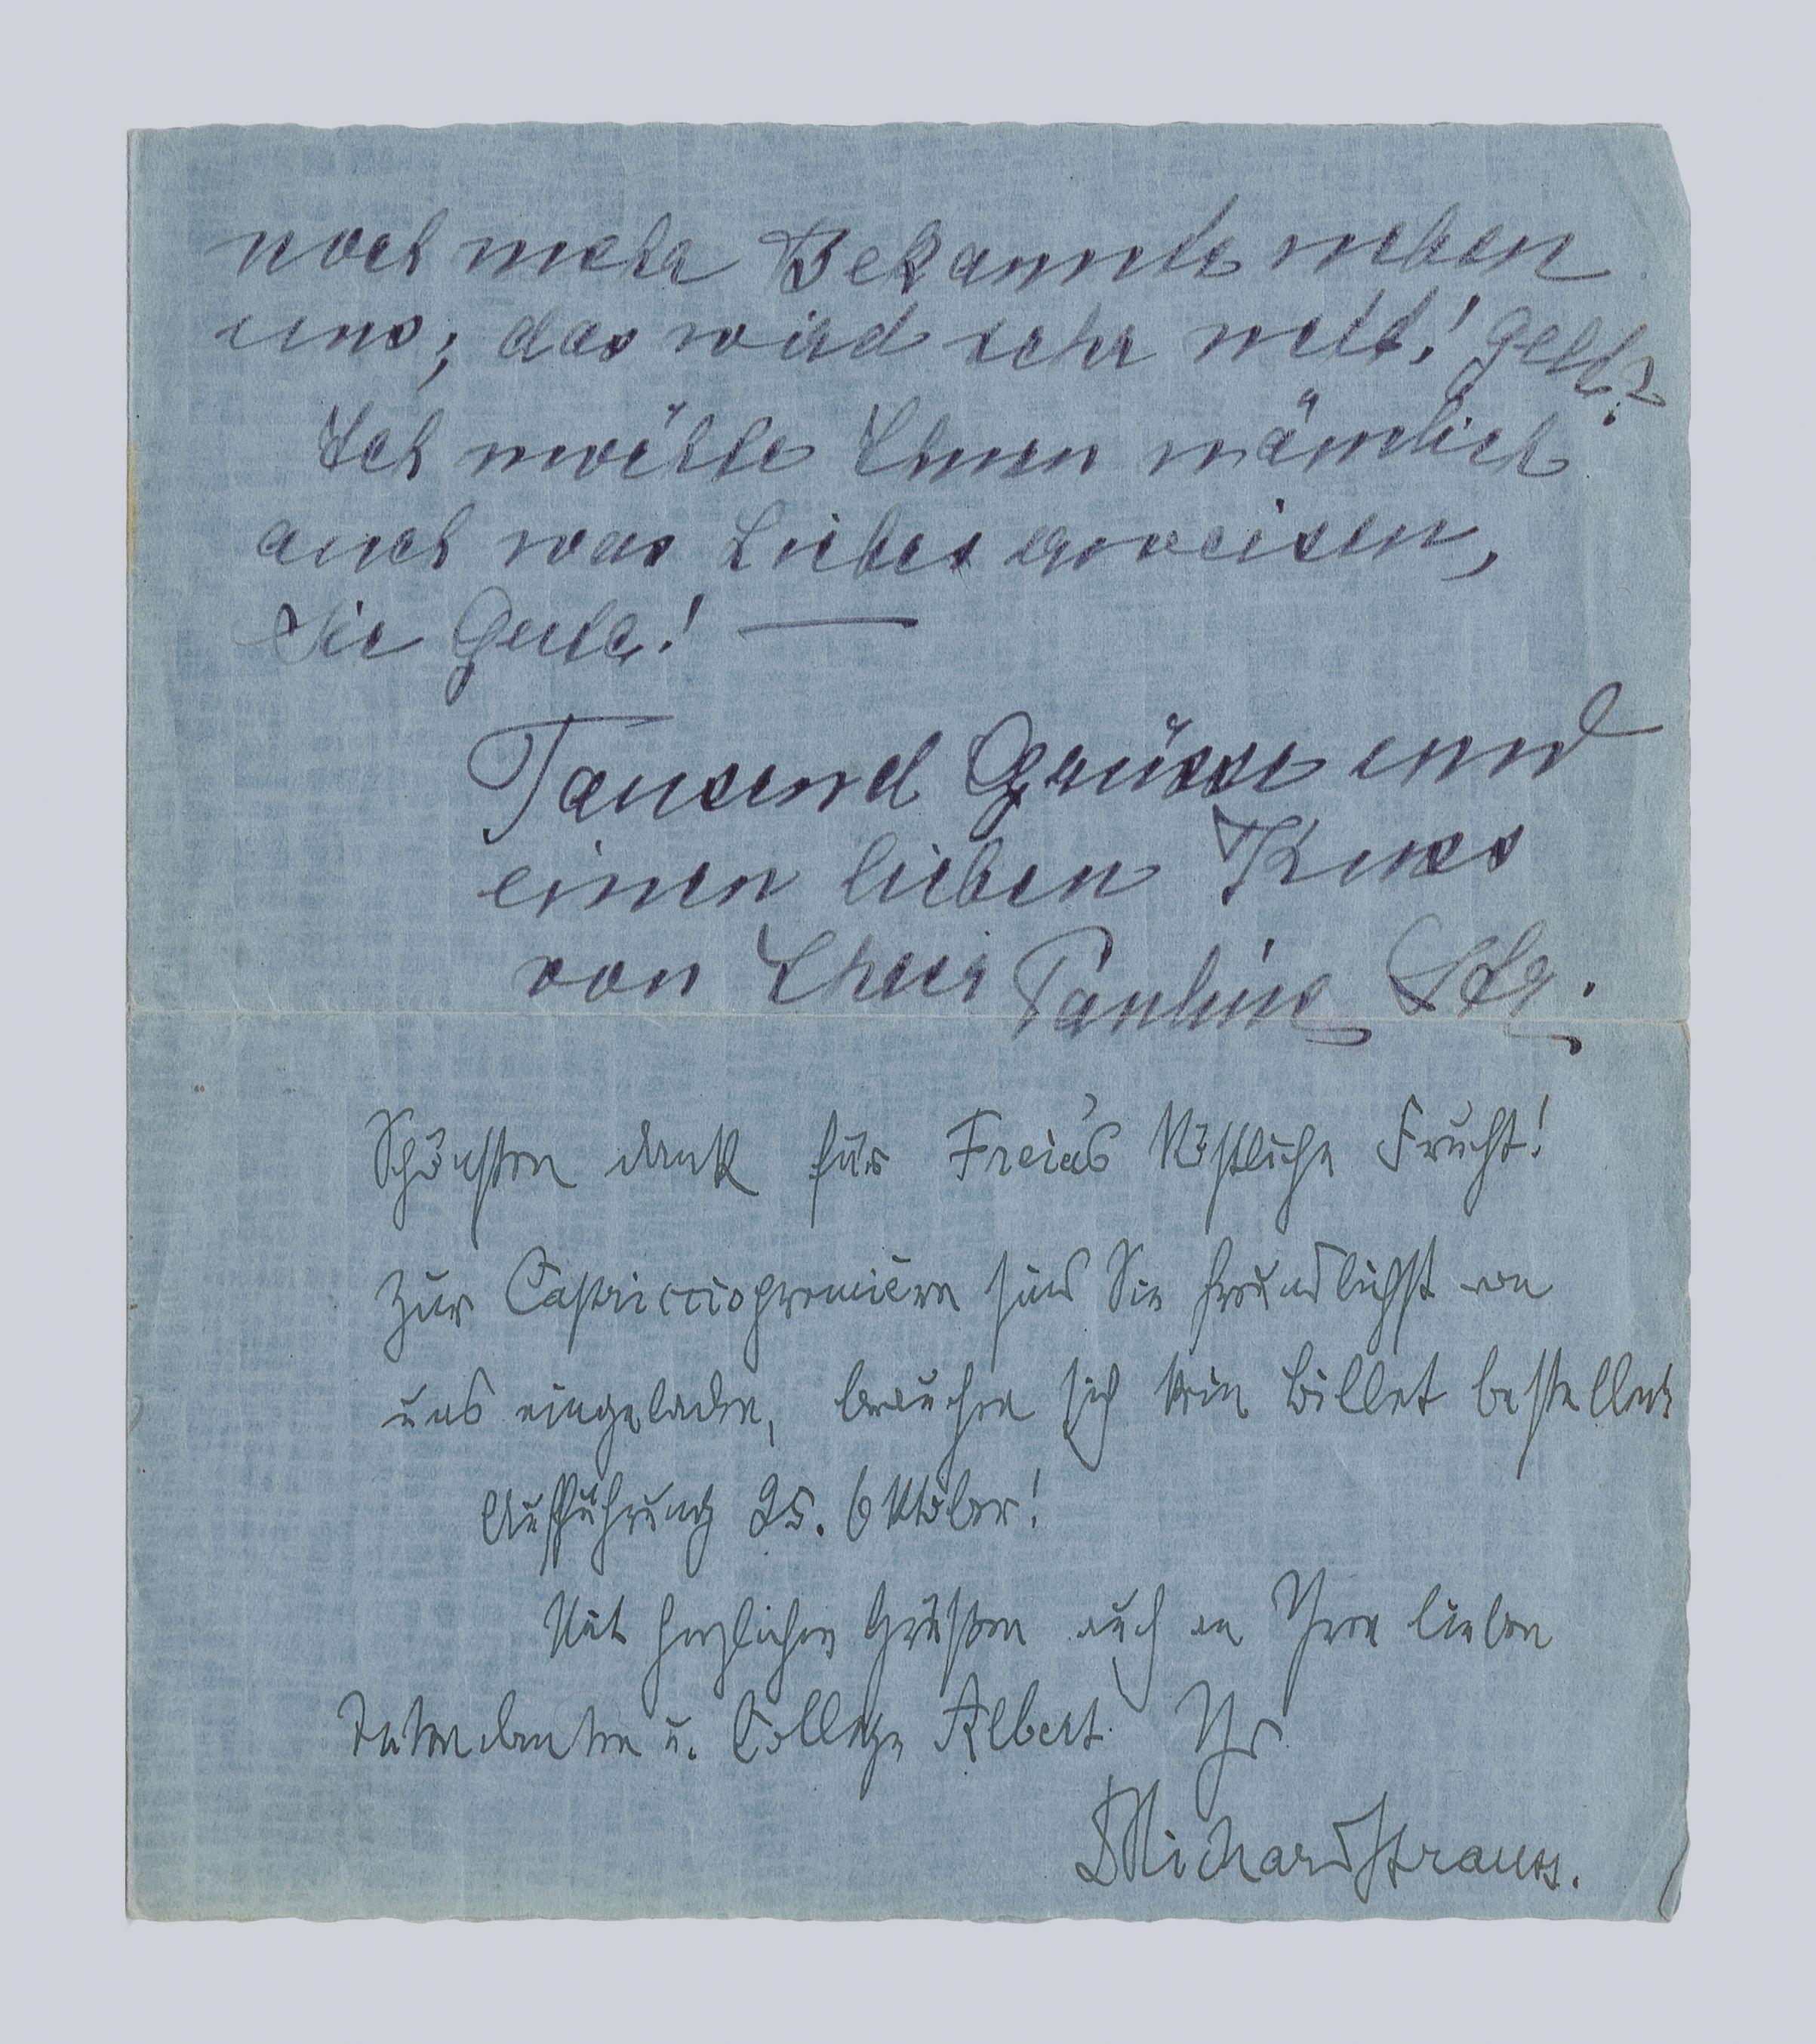 noch mehr Bekannte neben
uns; das wird sehr nett! Gelt?
Ich möchte Ihnen nämlich
auch was Liebes erweisen,
Sie Gute! —
Tausend Grüsse und
einen lieben Kuss
von Ihrer Pauline Str.
Schönsten Dank für Freia's köstliche Frucht!
Zur Capricciopremière sind Sie freundlichst von
uns eingeladen, brauchen sich kein Billet bestellen
Aufführung 25. Oktober!
Mit herzlichen Grüßen auch an Ihren lieben
Intendanten u. Collegen Albert. Ihr
DRichardStrauss.